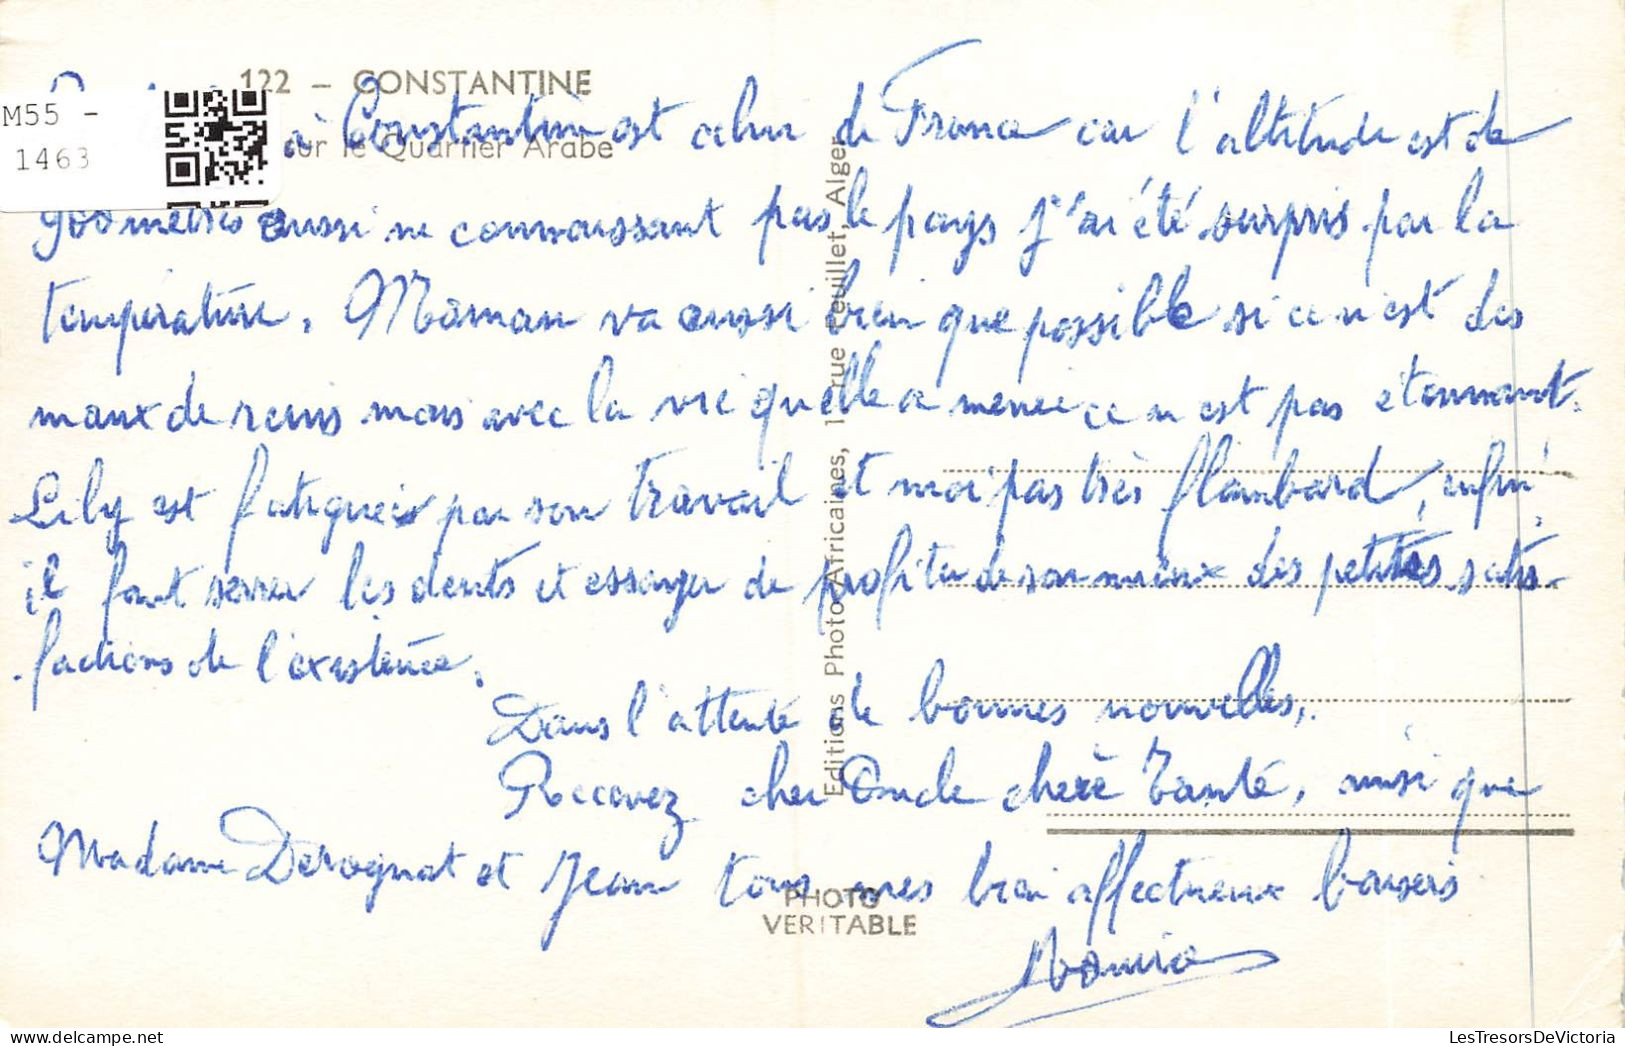 122 - CONSTANTINE
sur le Quartier Arabe
M55 -
1463
à Constantine est celui de France car l'altitude est de
900 mètres aussi ne connaissant pas le pays j'ai été surpris par la
température. Maman va aussi bien que possible si ce n'est des
maux de reins mais avec la vie qu'elle a menée ce n'est pas étonnant.
Lily est fatiguée par son travail et moi pas très flambard, enfin
il faut serrer les dents et essayer de profiter de son mieux des petites satis-
factions de l'existence.
Dans l'attente de bonnes nouvelles,
Recevez cher Oncle chère Tante, ainsi que
Madame Derognat et Jean tous mes bien affectueux baisers
Editions Photo-Africaines, 1 rue Feuillet, Alger
PHOTO
VERITABLE
LesTresorsDeVictoria